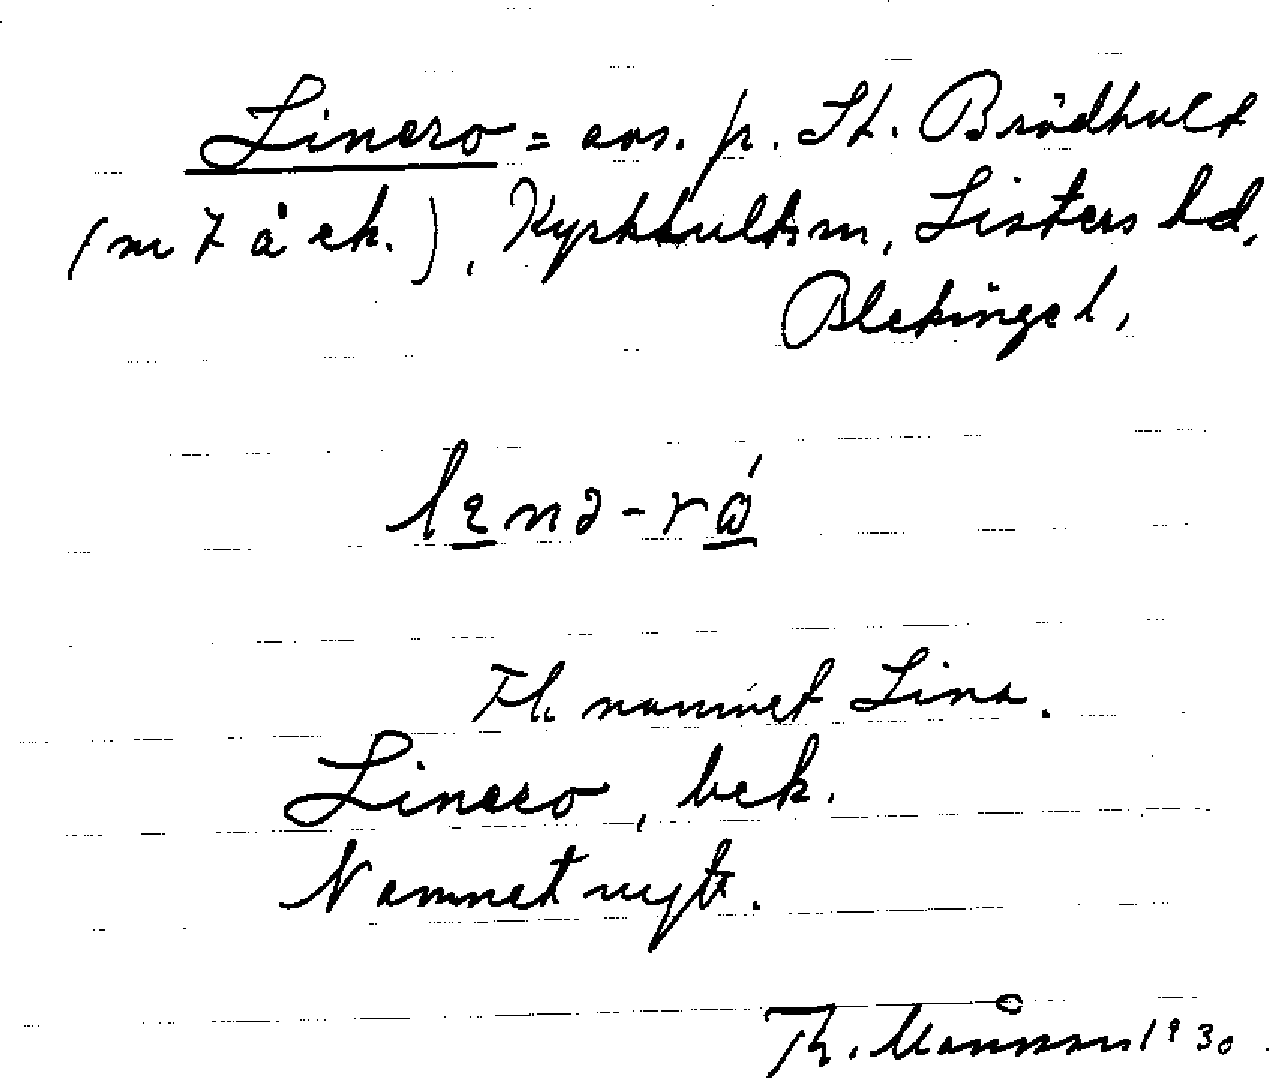 Linero = avs. p. St. Brödhult
(m 7 å ek.), Kyrkhults sn, Listers hd,
Blekinge l,
lenə-ró
Fl. namnet Lina.
Linero, bek.
Namnet nytt.
Th. Månsson 1930.